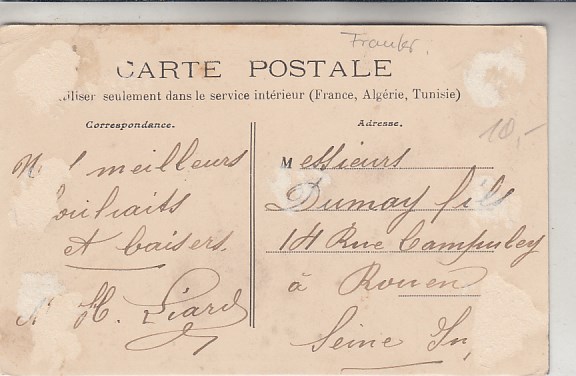 Frankr.
CARTE POSTALE
utiliser seulement dans le service intérieur (France, Algérie, Tunisie)
Correspondance.
Adresse.
10,-
meilleurs
Souhaits
et baisers.
H. Liard
Messieurs
Dumay fils
14 Rue Campulley
à Rouen
Seine In,